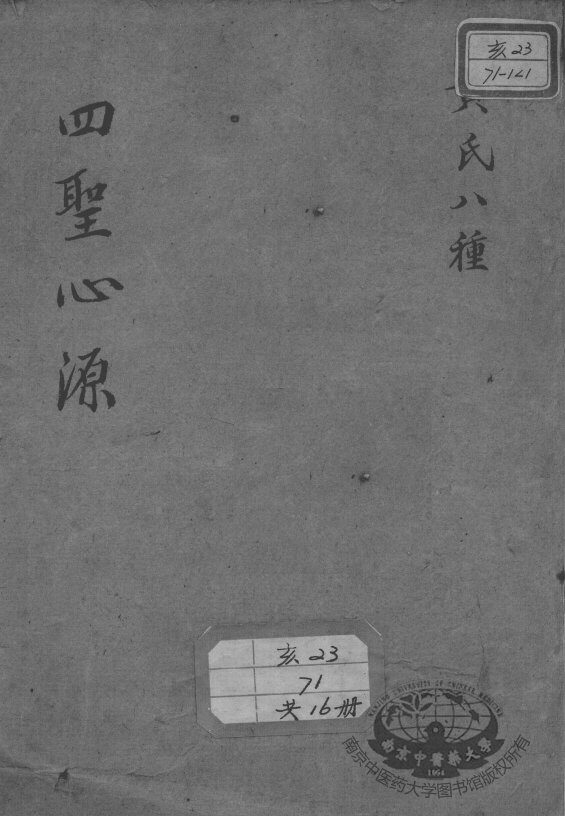 亥23
71-121
黃氏八種
四聖心源
亥23
71
共16册
NANJING UNIVERSITY OF CHINESE MEDICINE
南京中醫藥大學
1954
南京中医药大学图书馆版权所有